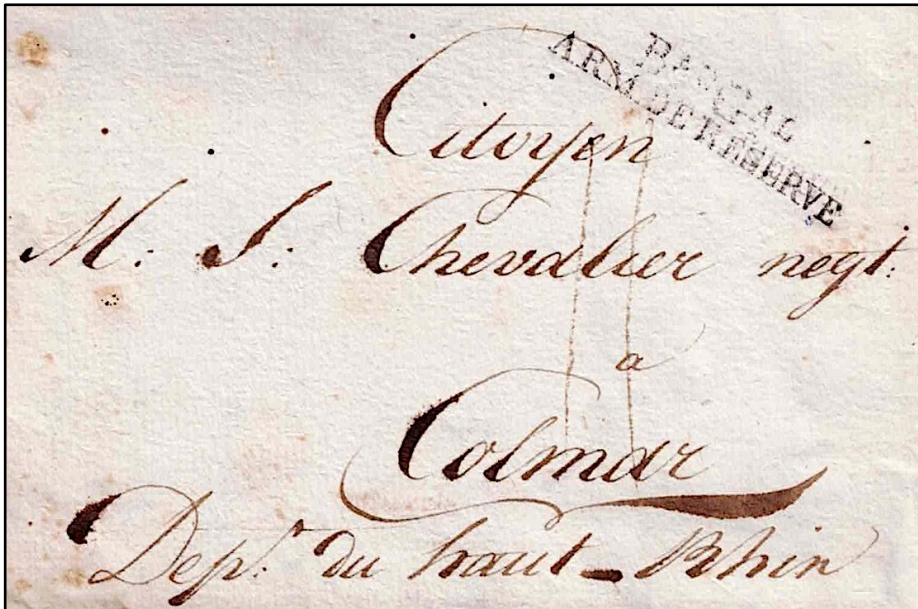 ARM. DE RESERVE
Citoyen
M. J. Chevalier negt.
a
Colmar
Dept. du haut-Rhin